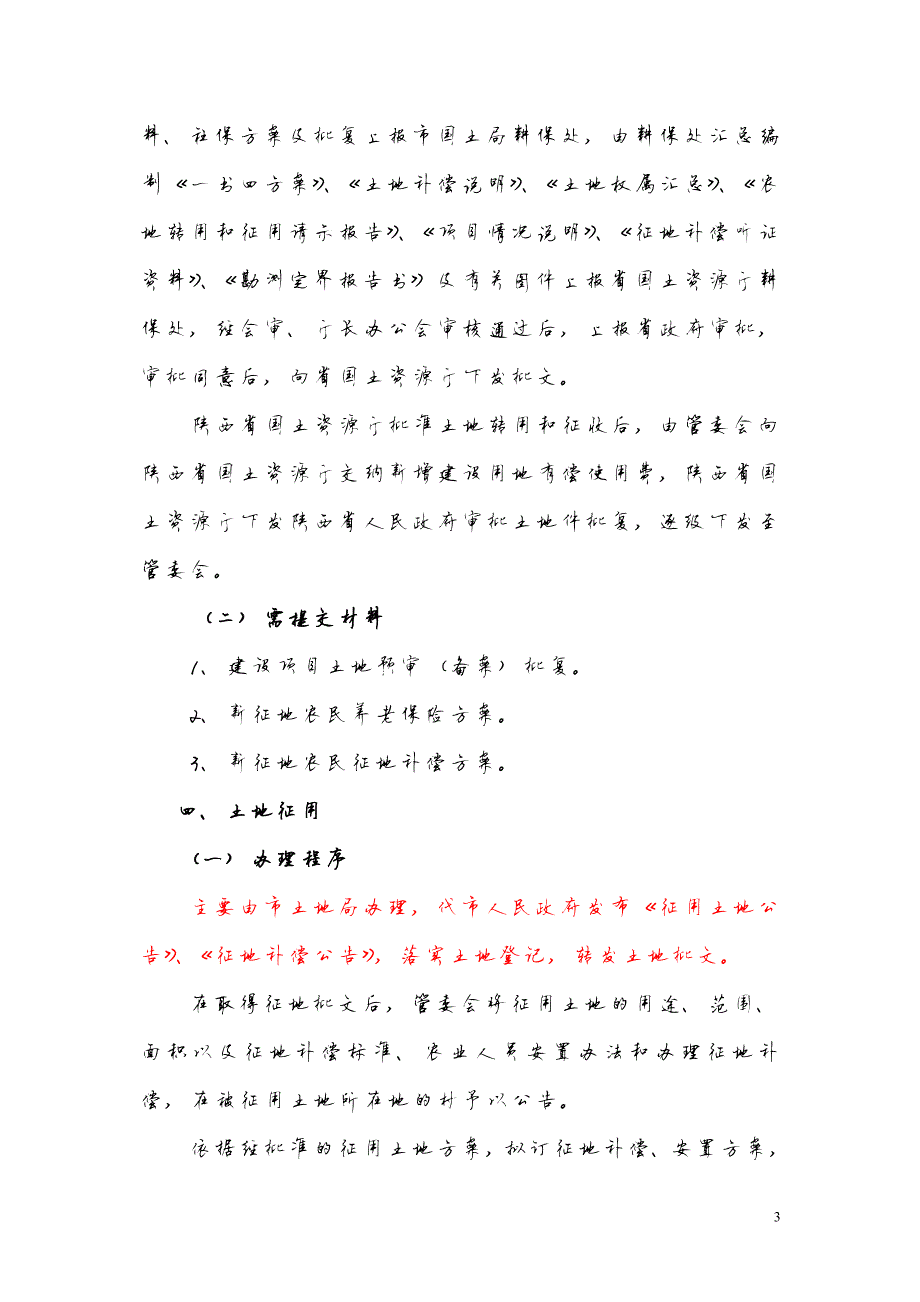 料、社保方案及批复上报市国土局耕保处，由耕保处汇总编
制《一书四方案》、《土地补偿说明》、《土地权属汇总》、《农
地转用和征用请示报告》、《项目情况说明》、《征地补偿听证
资料》、《勘测定界报告书》及有关图件上报省国土资源厅耕
保处，经会审、厅长办公会审核通过后，上报省政府审批，
审批同意后，向省国土资源厅下发批文。
陕西省国土资源厅批准土地转用和征收后，由管委会向
陕西省国土资源厅交纳新增建设用地有偿使用费，陕西省国
土资源厅下发陕西省人民政府审批土地件批复，逐级下发至
管委会。
（二）需提交材料
1、建设项目土地预审（备案）批复。
2、新征地农民养老保险方案。
3、新征地农民征地补偿方案。
四、土地征用
（一）办理程序
主要由市土地局办理，代市人民政府发布《征用土地公
告》、《征地补偿公告》，落实土地登记，转发土地批文。
在取得征地批文后，管委会将征用土地的用途、范围、
面积以及征地补偿标准、农业人员安置办法和办理征地补
偿，在被征用土地所在地的村予以公告。
依据经批准的征用土地方案，拟订征地补偿、安置方案，
3